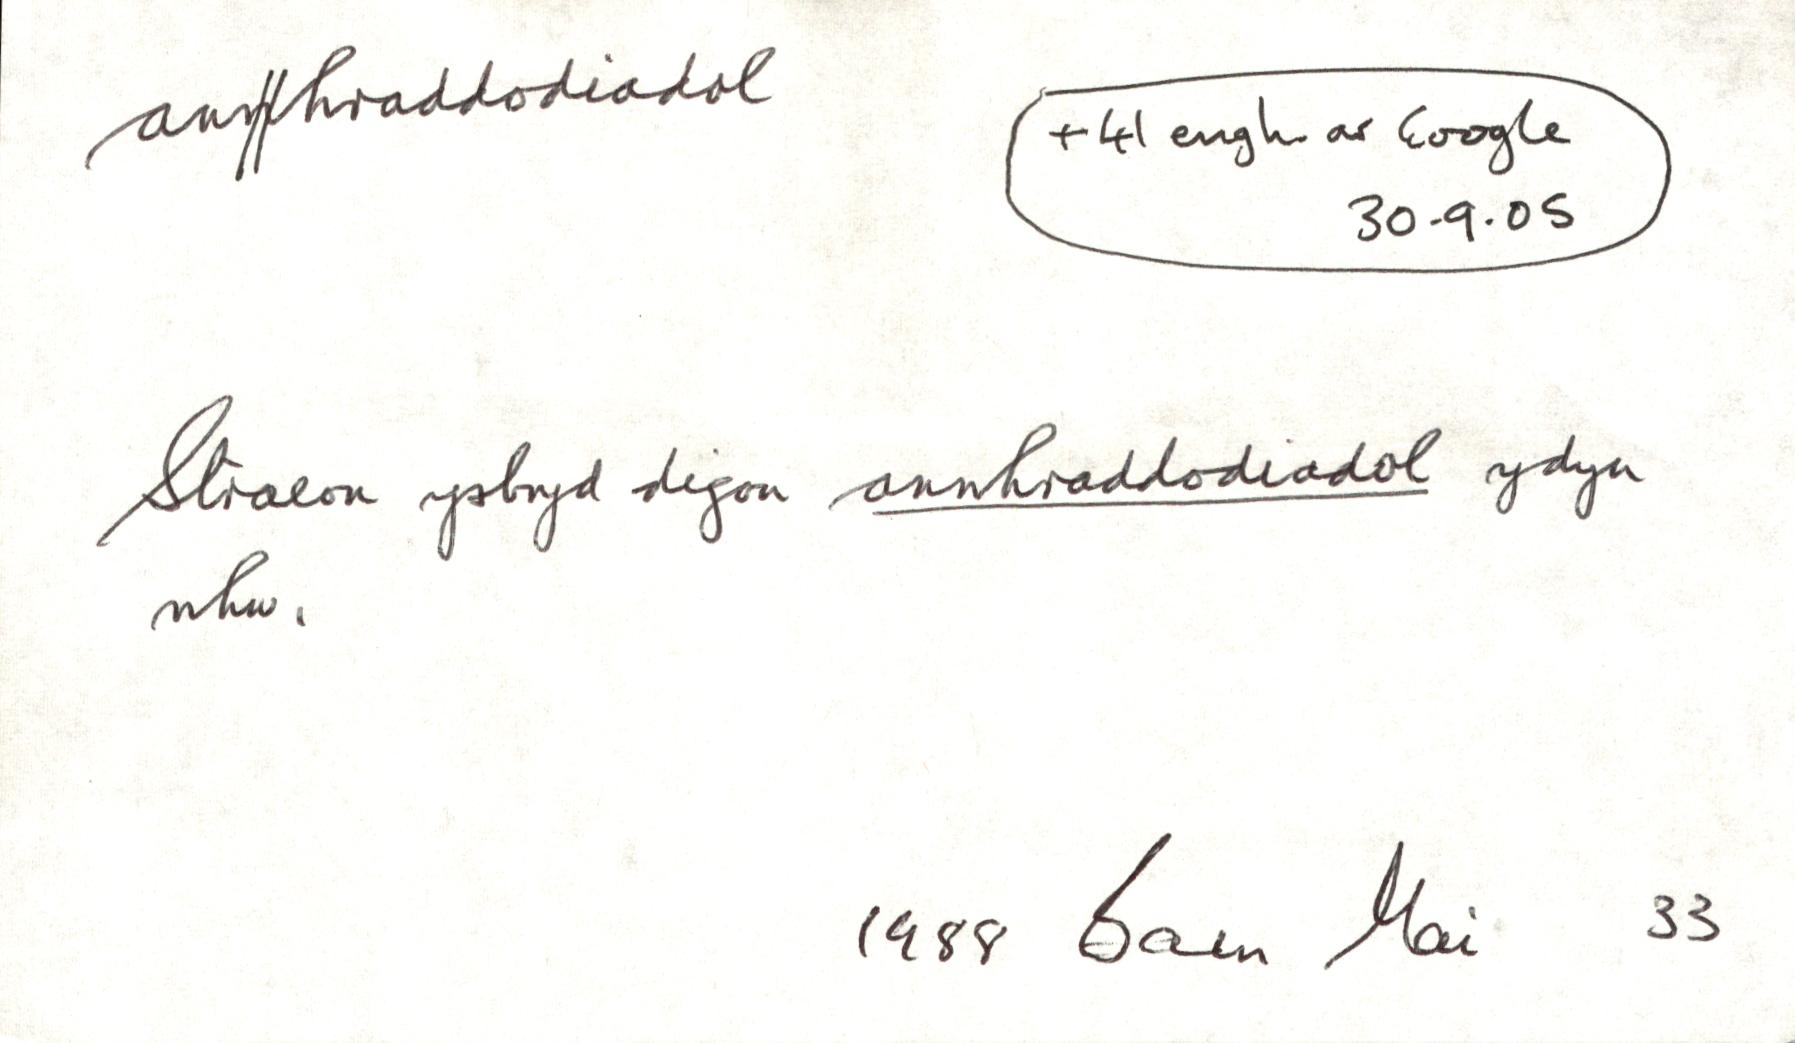 ann//hraddodiadol
+41 engh. ar Google
30.9.05
Straeon ysbryd digon annhraddodiadol ydyn
nhw.
1988 Barn Mai 33